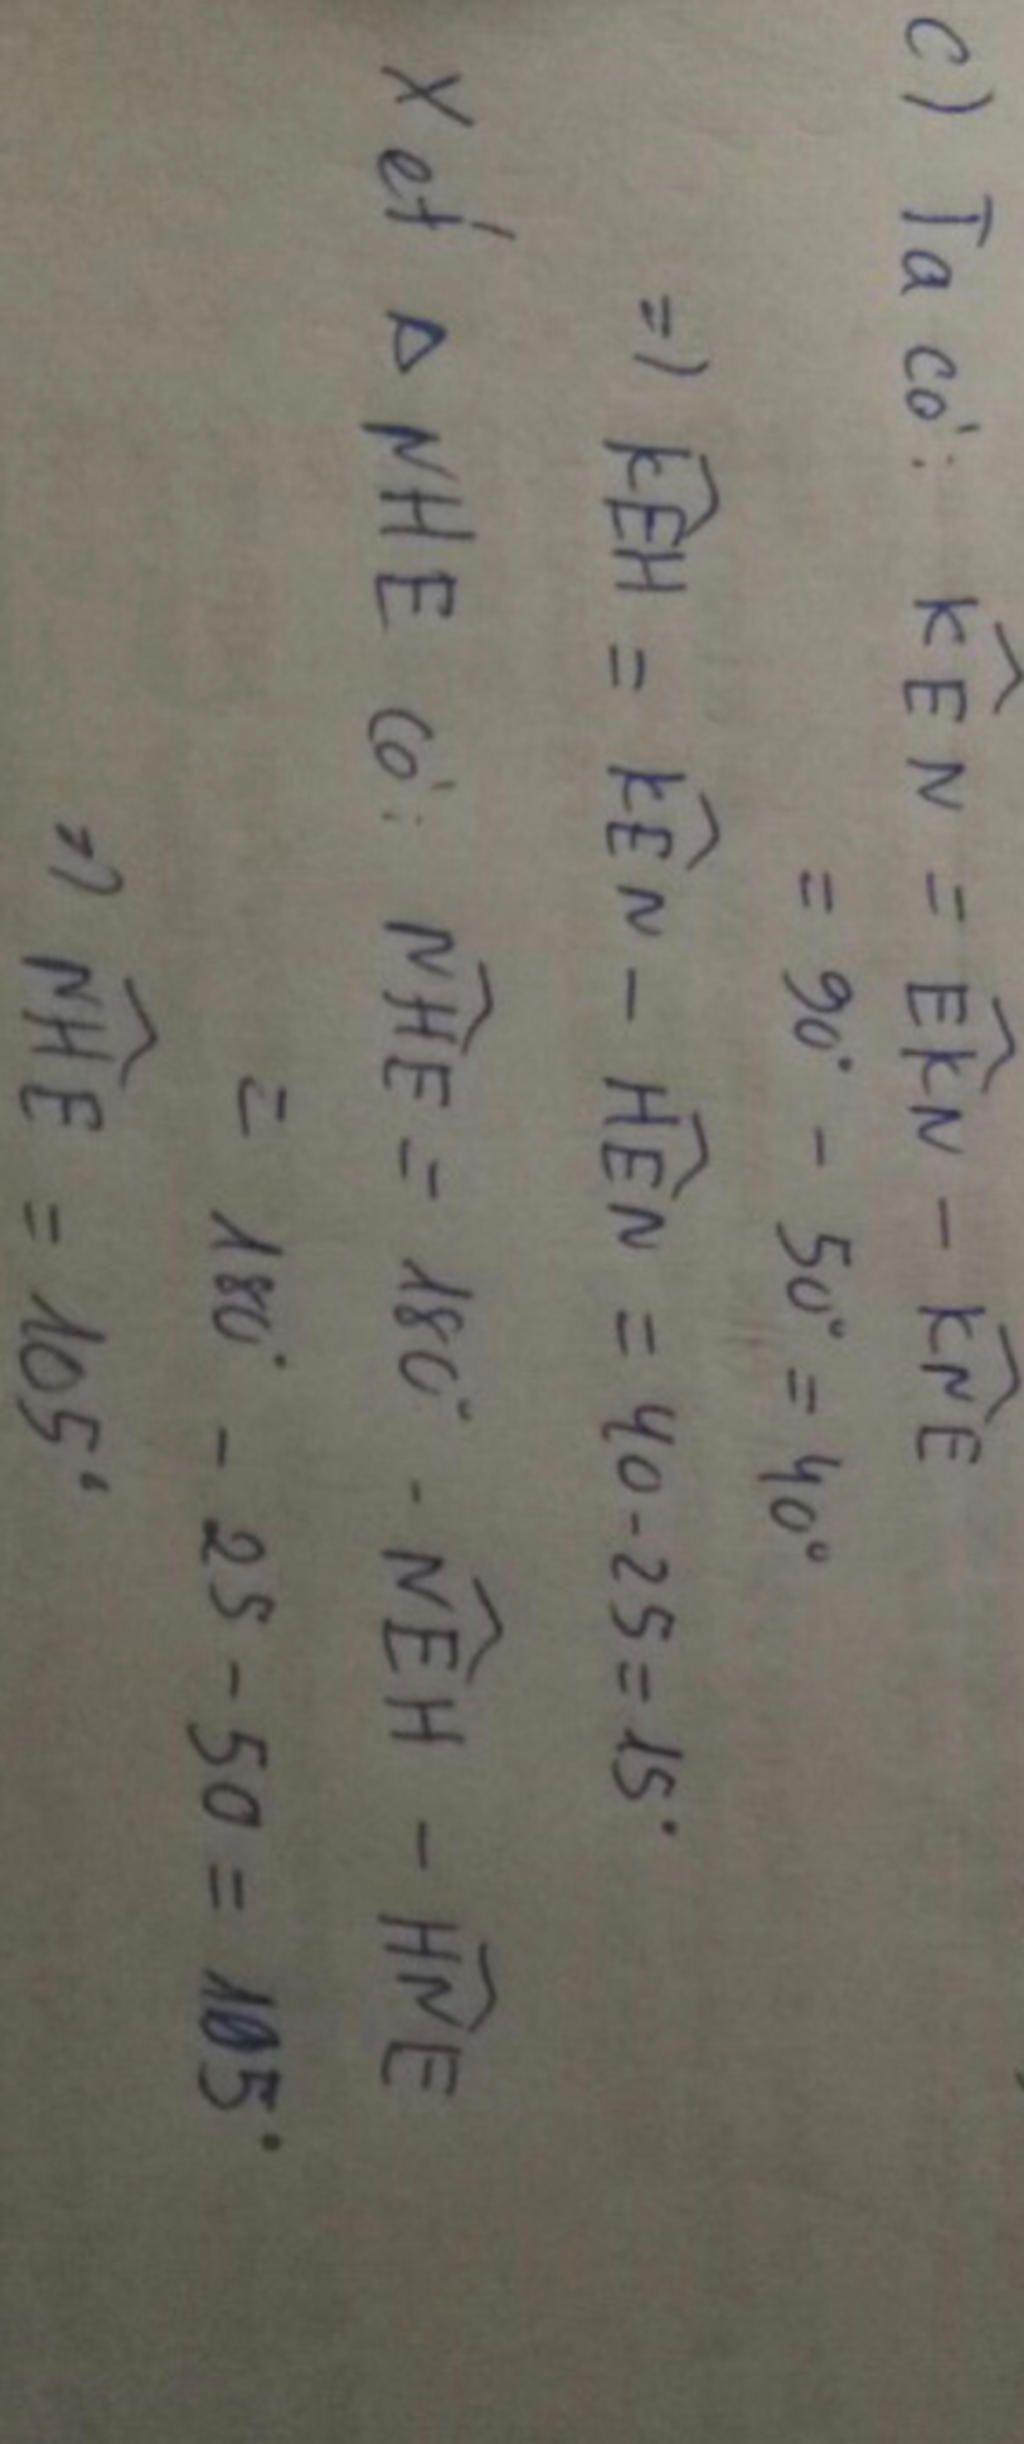 c) Ta có: K̂EN = EK̂N - KN̂E
= 90° - 50° = 40°
=) KÊH = KÊN - HÊN = 40 - 25 = 15°
Xét Δ NHE có: NĤE = 180° - NÊH - HN̂E
= 180° - 25 - 50 = 105°
=) NĤE = 105°